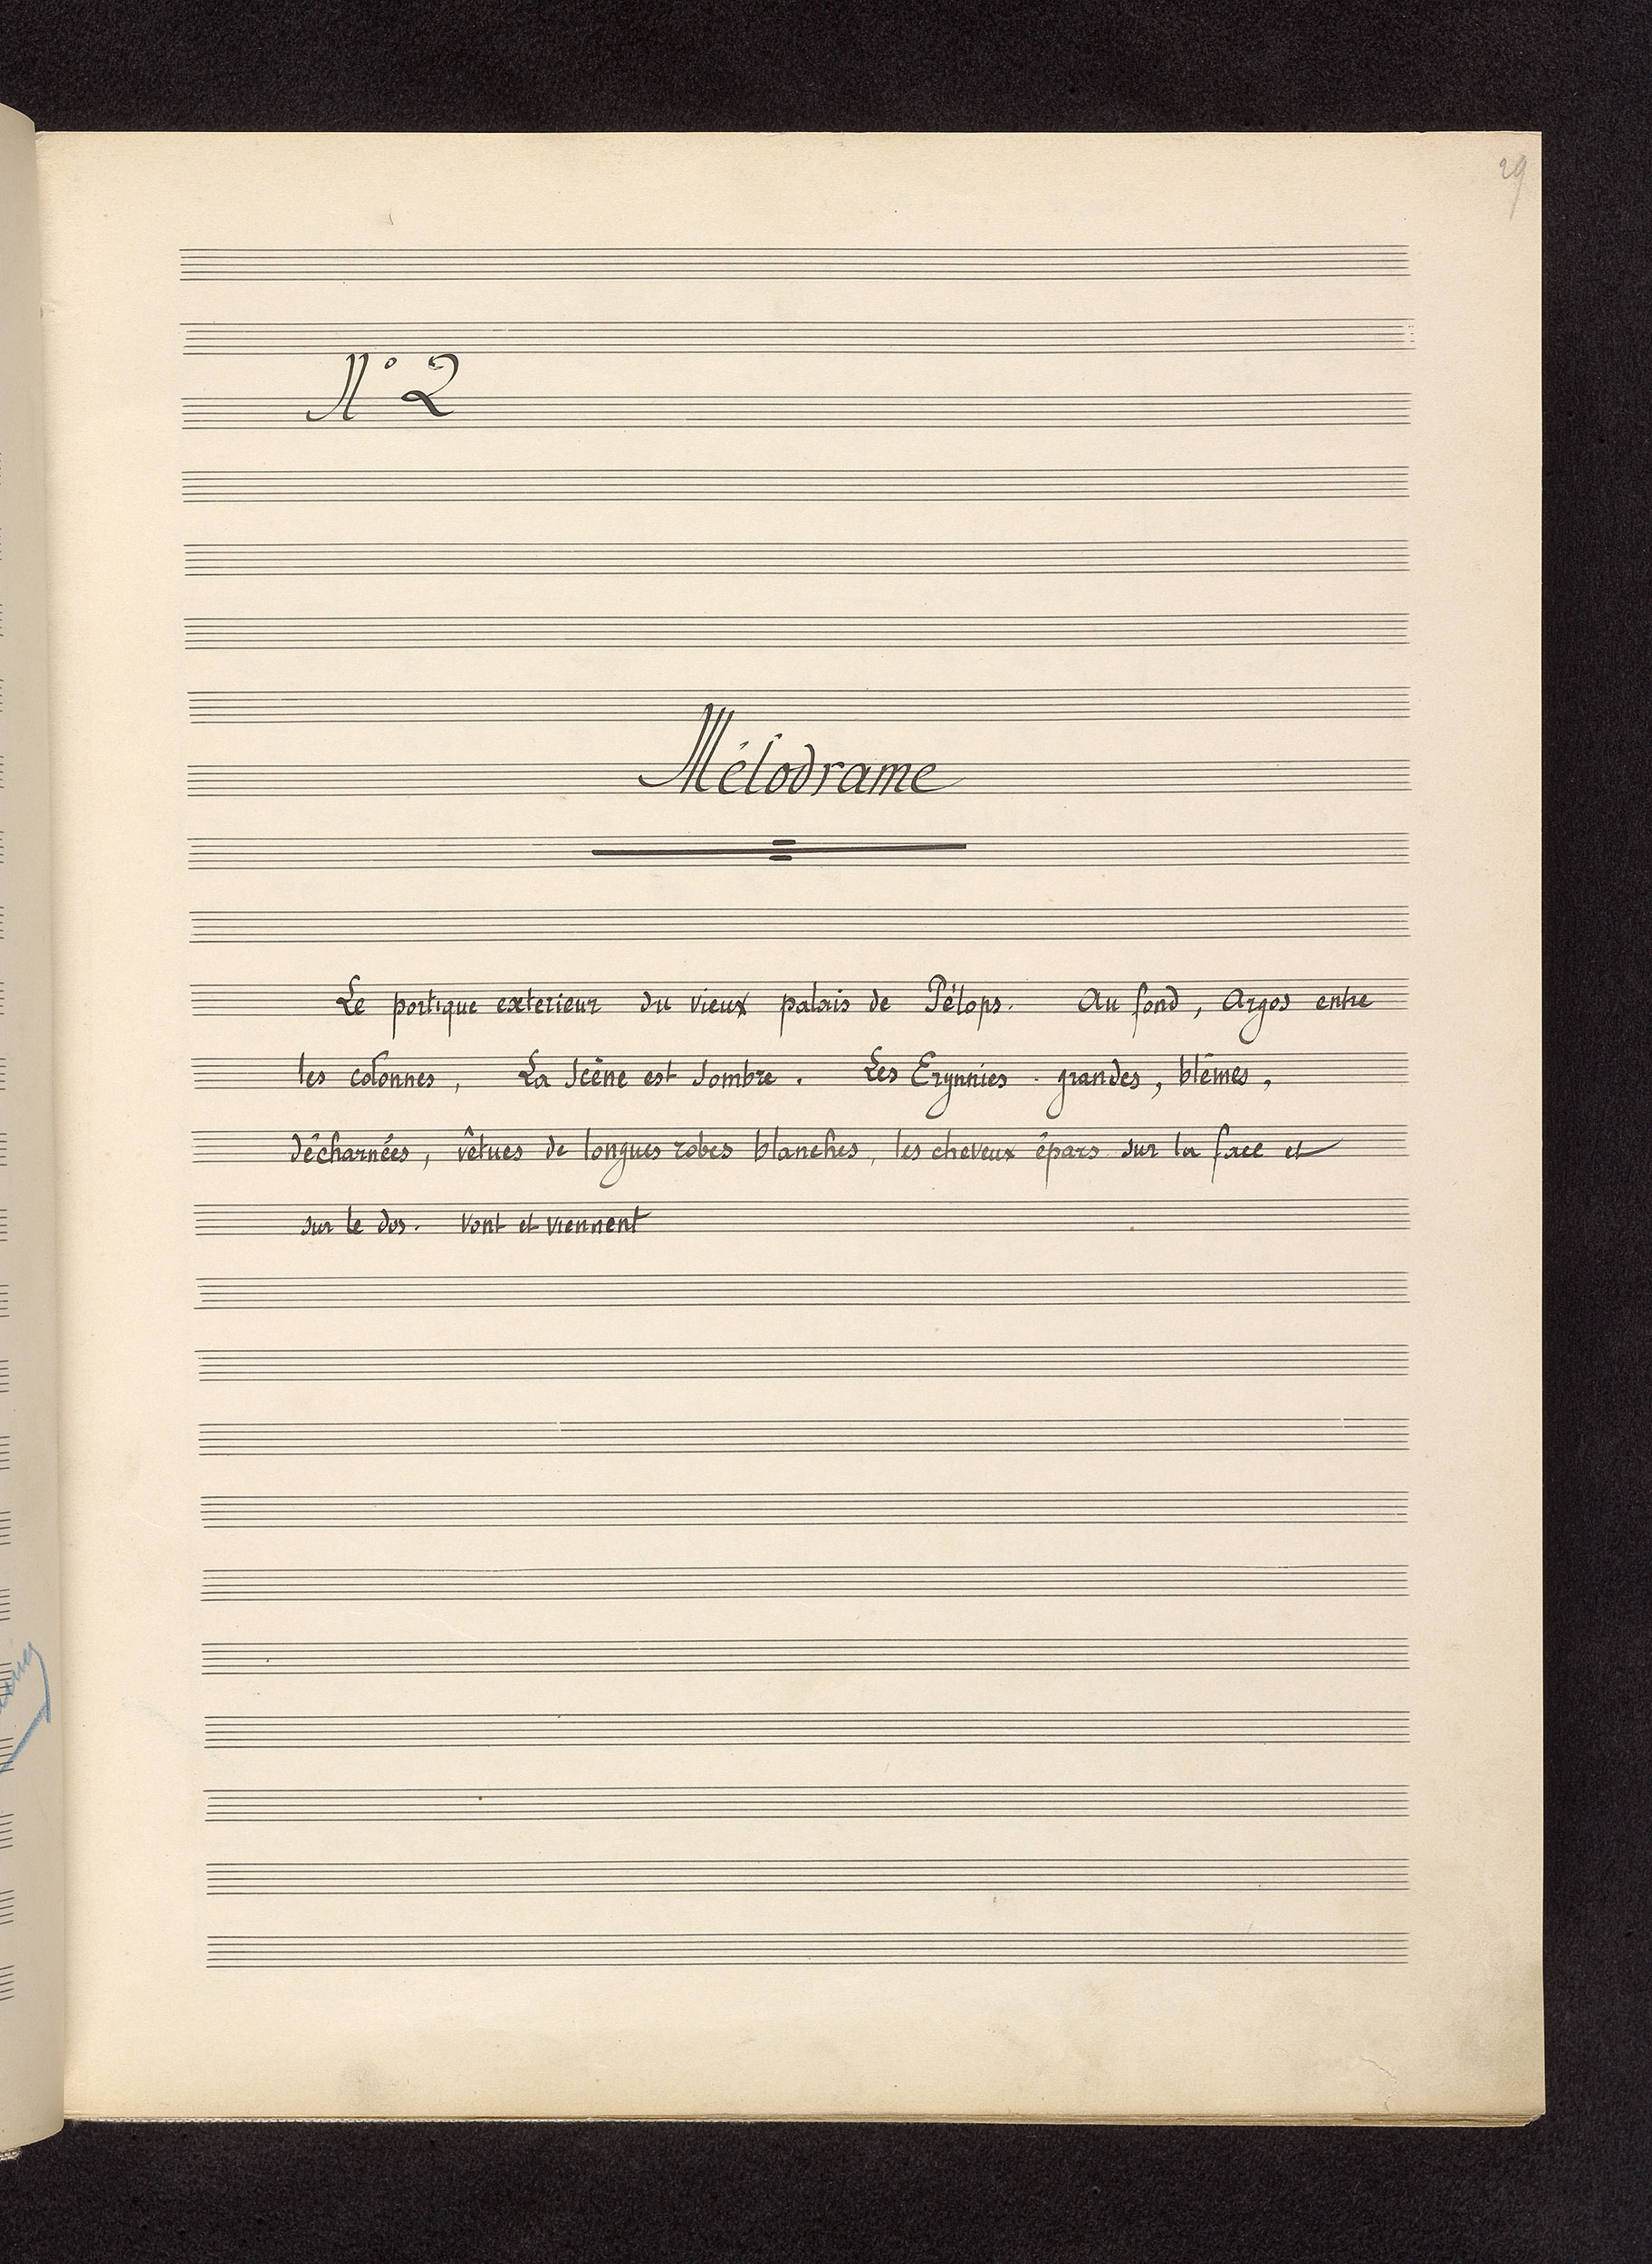 29
N° 2
Mélodrame
Le portique exterieur du vieux palais de Pélops. Au fond, Argos entre
les colonnes, La Scène est Sombre. Les Erynnies - grandes, blêmes,
décharnées, vêtues de longues robes blanches, les cheveux épars sur la face et
sur le dos. Vont et viennent